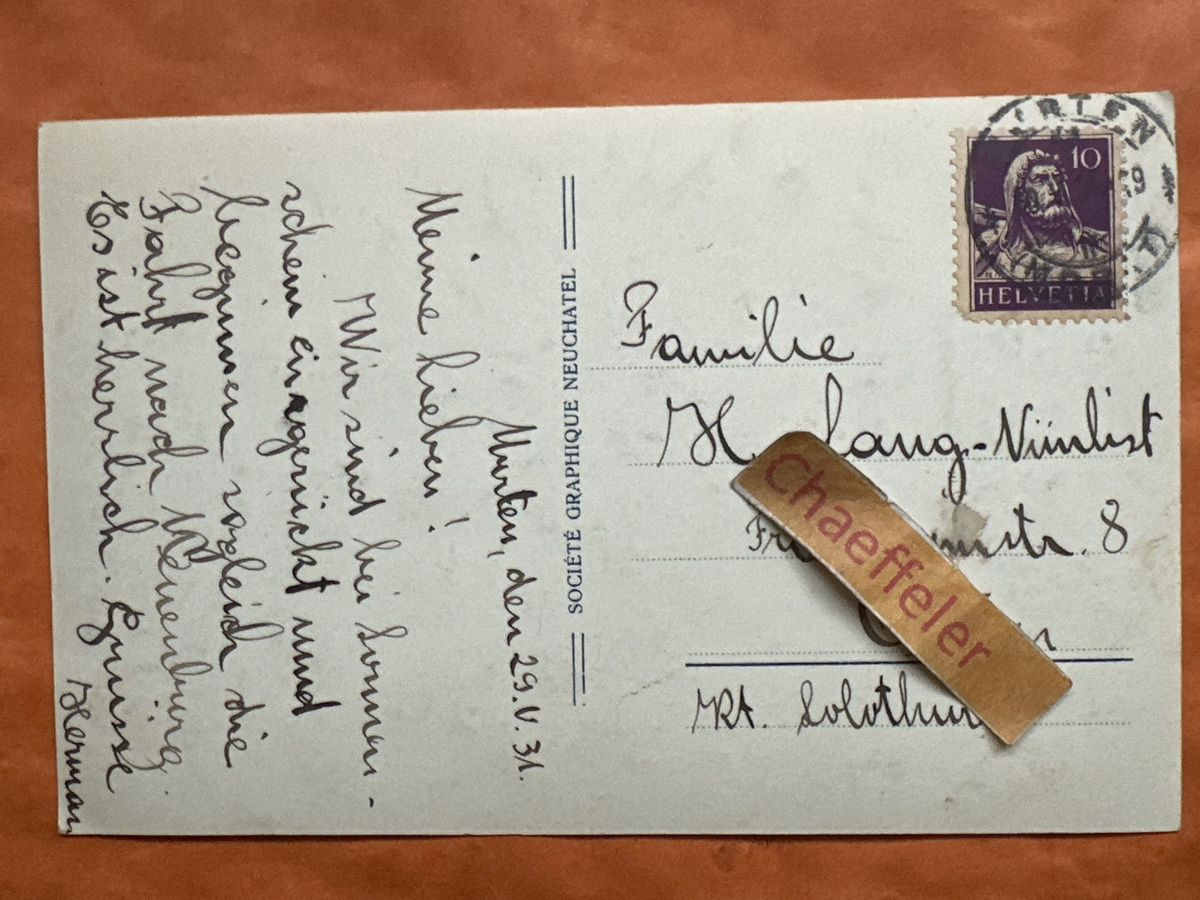 Murten, den 29.V.31.
Meine Lieben!
Wir sind bei Sonnen-
schein eingerückt und
beginnen sogleich die
Fahrt nach Neuenburg.
Es ist herrlich. Grüsse
Herman
SOCIÉTÉ GRAPHIQUE NEUCHATEL
10
HELVETIA
Familie
H. Lang-Nünlist
str. 8
Kt. Solothurn
Chaeffeler